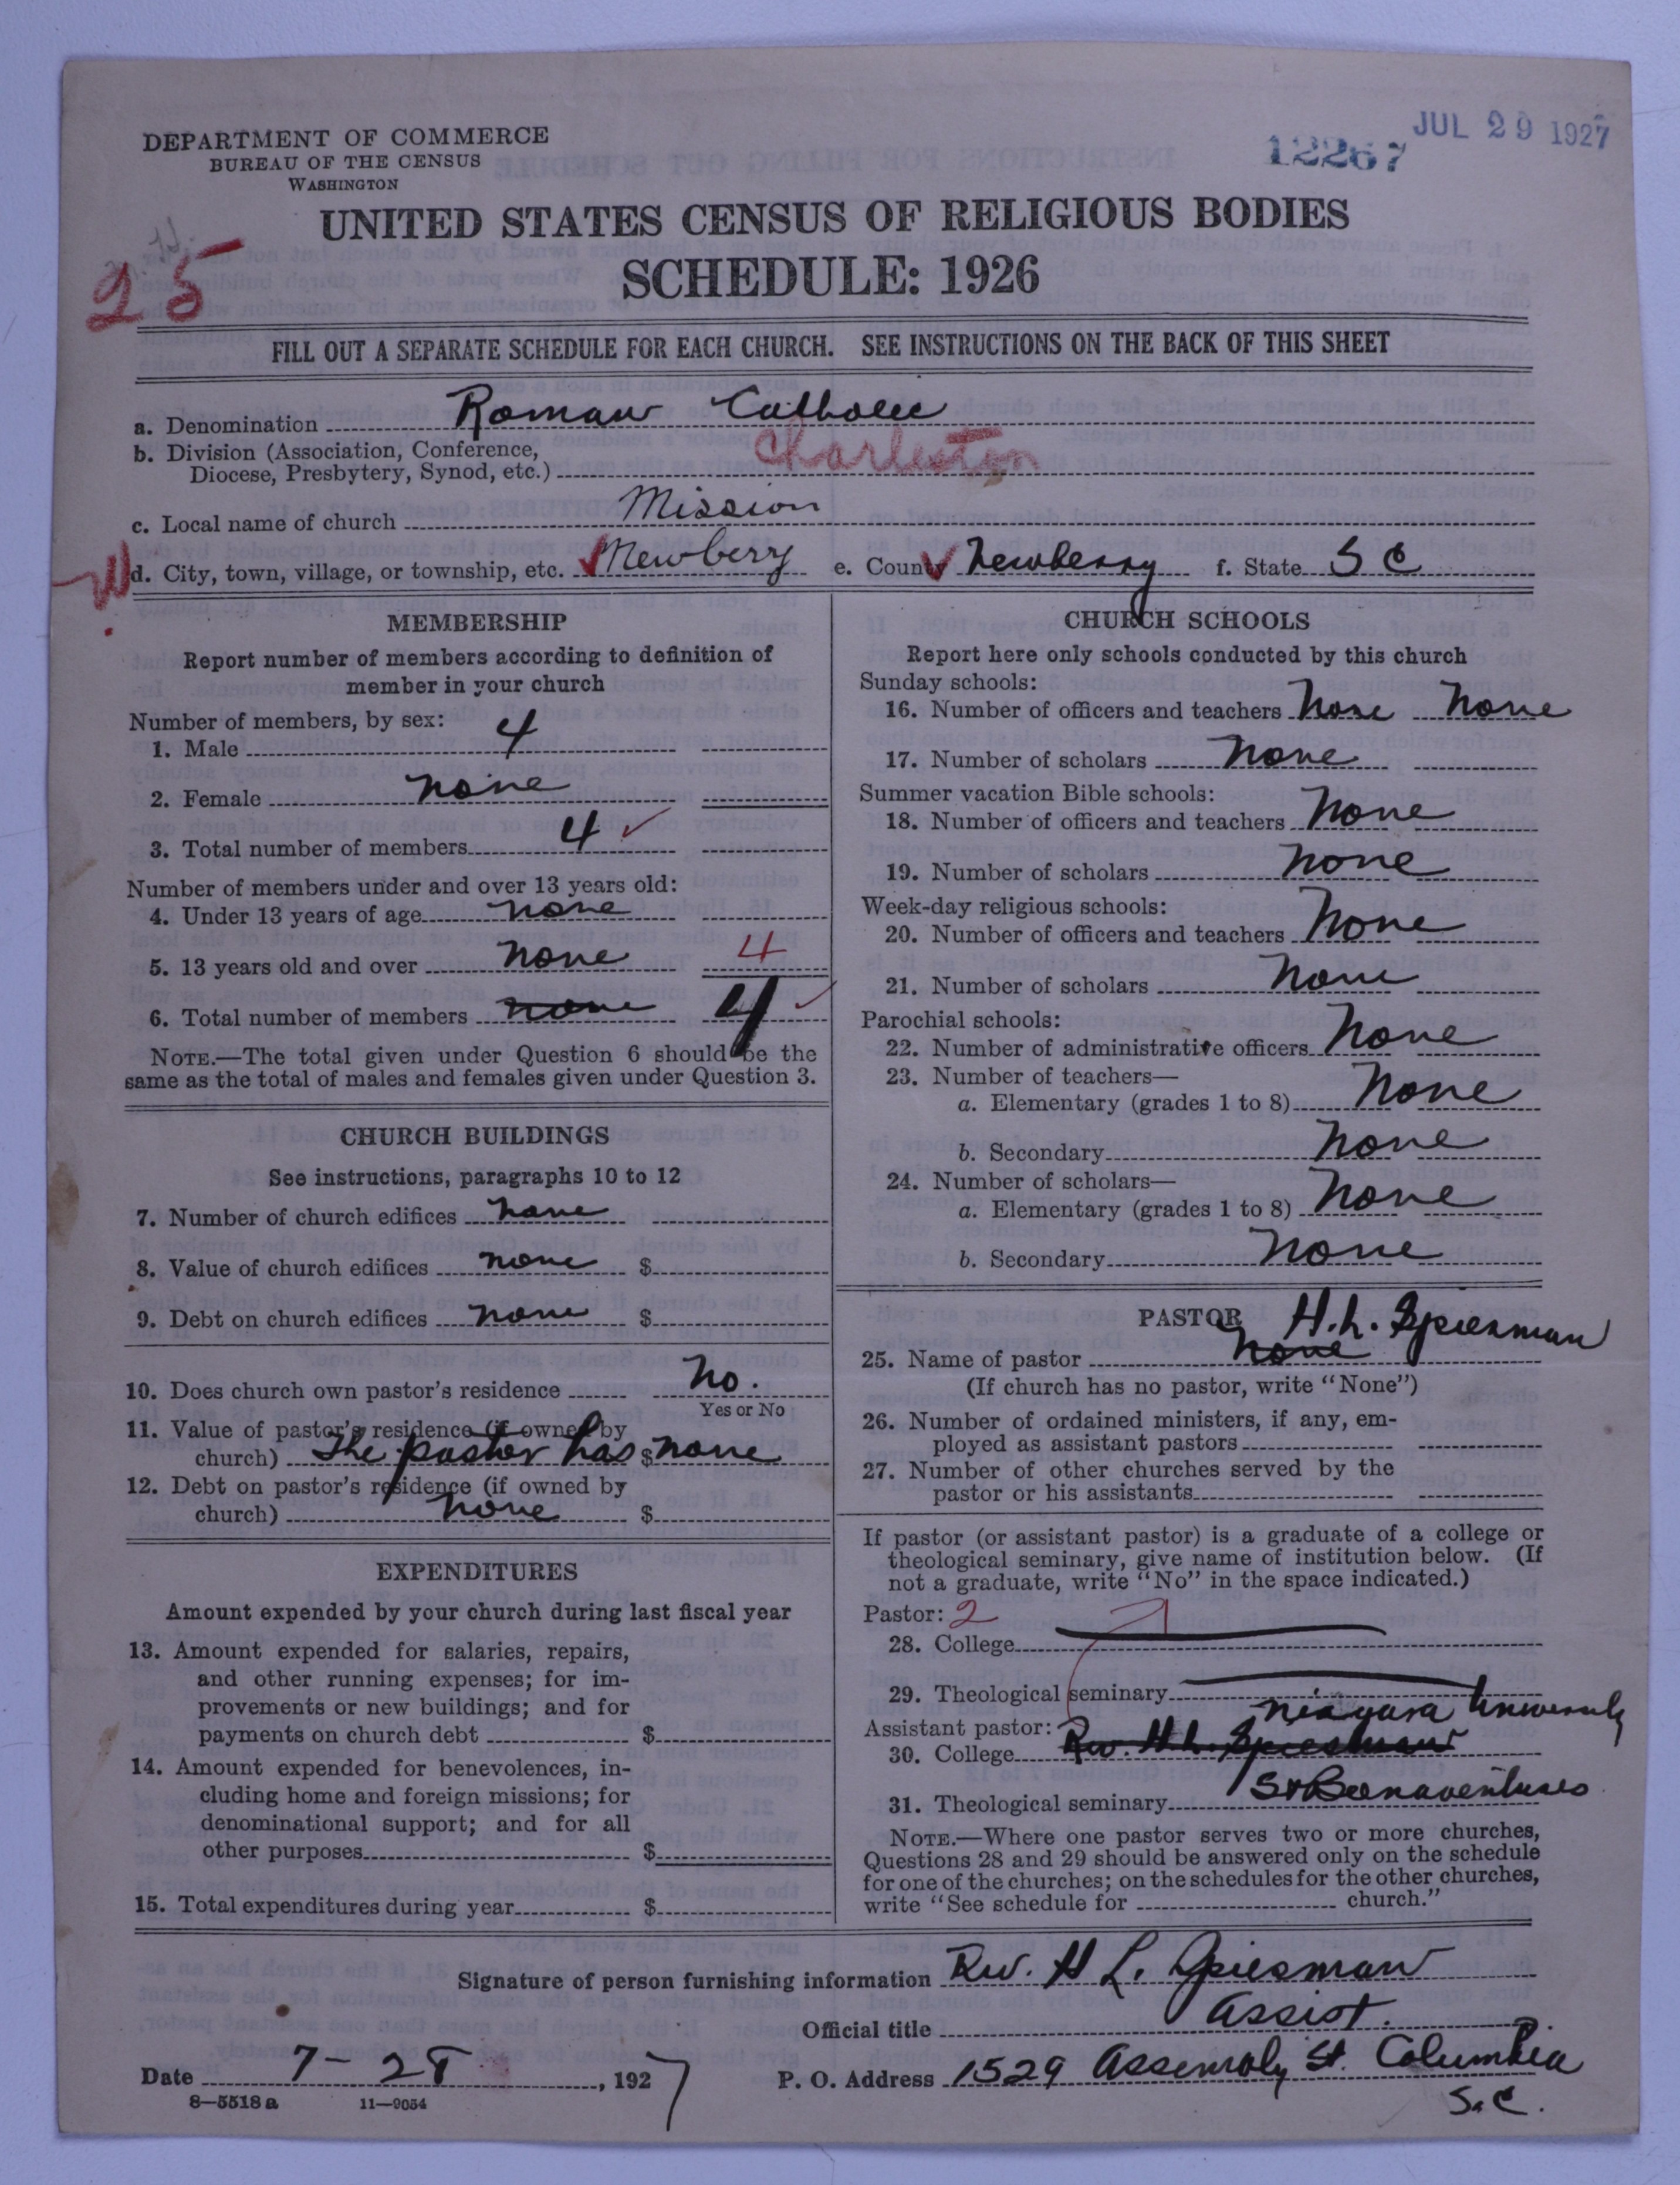 DEPARTMENT OF COMMERCE
BUREAU OF THE CENSUS
WASHINGTON
12267
JUL 29 1927
UNITED STATES CENSUS OF RELIGIOUS BODIES
25
SCHEDULE: 1926
FILL OUT A SEPARATE SCHEDULE FOR EACH CHURCH. SEE INSTRUCTIONS ON THE BACK OF THIS SHEET
a. Denomination Roman Catholic
b. Division (Association, Conference,
Diocese, Presbytery, Synod, etc.) Charleston
c. Local name of church Mission
d. City, town, village, or township, etc. Newberry e. County Newberry f. State S C
MEMBERSHIP
Report number of members according to definition of
member in your church
Number of members, by sex:
1. Male 4
2. Female none
3. Total number of members 4
Number of members under and over 13 years old:
4. Under 13 years of age none
5. 13 years old and over none 4
6. Total number of members none 4
NOTE.—The total given under Question 6 should be the
same as the total of males and females given under Question 3.
CHURCH BUILDINGS
See instructions, paragraphs 10 to 12
7. Number of church edifices none
8. Value of church edifices none $
9. Debt on church edifices none $
10. Does church own pastor's residence No.
Yes or No
11. Value of pastor's residence (if owned by
church) The pastor has $ none
12. Debt on pastor's residence (if owned by
church) none $
EXPENDITURES
Amount expended by your church during last fiscal year
13. Amount expended for salaries, repairs,
and other running expenses; for im-
provements or new buildings; and for
payments on church debt $
14. Amount expended for benevolences, in-
cluding home and foreign missions; for
denominational support; and for all
other purposes $
15. Total expenditures during year $
CHURCH SCHOOLS
Report here only schools conducted by this church
Sunday schools:
16. Number of officers and teachers None None
17. Number of scholars None
Summer vacation Bible schools:
18. Number of officers and teachers None
19. Number of scholars None
Week-day religious schools:
20. Number of officers and teachers None
21. Number of scholars None
Parochial schools:
22. Number of administrative officers None
23. Number of teachers—
a. Elementary (grades 1 to 8) None
b. Secondary None
24. Number of scholars—
a. Elementary (grades 1 to 8) None
b. Secondary None
PASTOR H. L. Spiesman
25. Name of pastor None
(If church has no pastor, write "None")
26. Number of ordained ministers, if any, em-
ployed as assistant pastors
27. Number of other churches served by the
pastor or his assistants
If pastor (or assistant pastor) is a graduate of a college or
theological seminary, give name of institution below. (If
not a graduate, write "No" in the space indicated.)
Pastor: 2
28. College
29. Theological seminary
Assistant pastor: Niagara University
30. College Rev. H. L. Spiesman
31. Theological seminary St Bonaventures
NOTE.—Where one pastor serves two or more churches,
Questions 28 and 29 should be answered only on the schedule
for one of the churches; on the schedules for the other churches,
write "See schedule for church."
Signature of person furnishing information Rev. H L. Spiesman
Official title Assist.
Date 7-28, 1927 P. O. Address 1529 Assembly St. Columbia
S.C.
8—5518a 11—9054